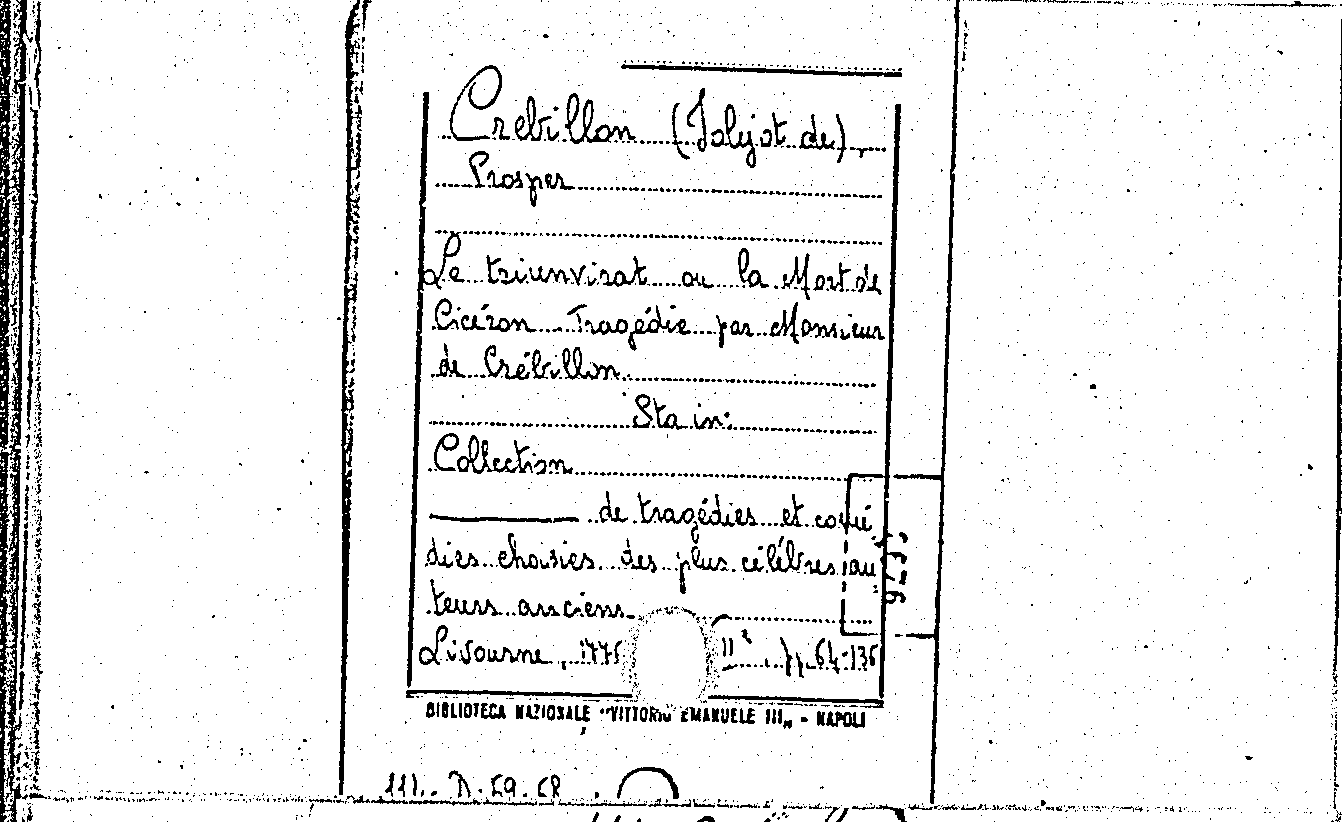 Crebillon (Jolyot de),
Prosper
Le triunvirat ou la Mort de
Cicéron Tragédie par Monsieur
de Crébillon
Sta in:
Collection
de tragédies et comé
dies choisies des plus célébres au
teurs anciens
Livourne, 177 II pp. 64-136
BIBLIOTECA NAZIONALE "VITTORIO EMANUELE III" - NAPOLI